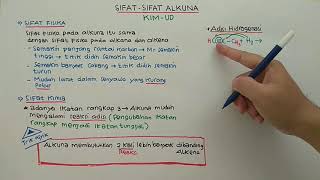 SIFAT-SIFAT ALKUNA
KIM-UD
→ SIFAT FISIKA
Sifat fisika pada alkuna itu sama
dengan sifat fisika pada alkana dan alkena
- Semakin panjang rantai karbon → Mr semakin
tinggi → titik didih semakin besar
- Semakin banyak cabang → titik didih semakin
rendah
- Mudah larut dalam senyawa yang kurang
polar
→ SIFAT KIMIA
- Adanya ikatan rangkap 3 → Alkuna mudah
mengalami reaksi adisi (Pengubahan ikatan
rangkap menjadi ikatan tunggal)
Trik Asik
Alkuna membutuhkan 2 kali lebih banyak dibanding
Alkena
Reaksi
• Adisi Hidrogenasi
HC≡C-CH₃ + H₂ →